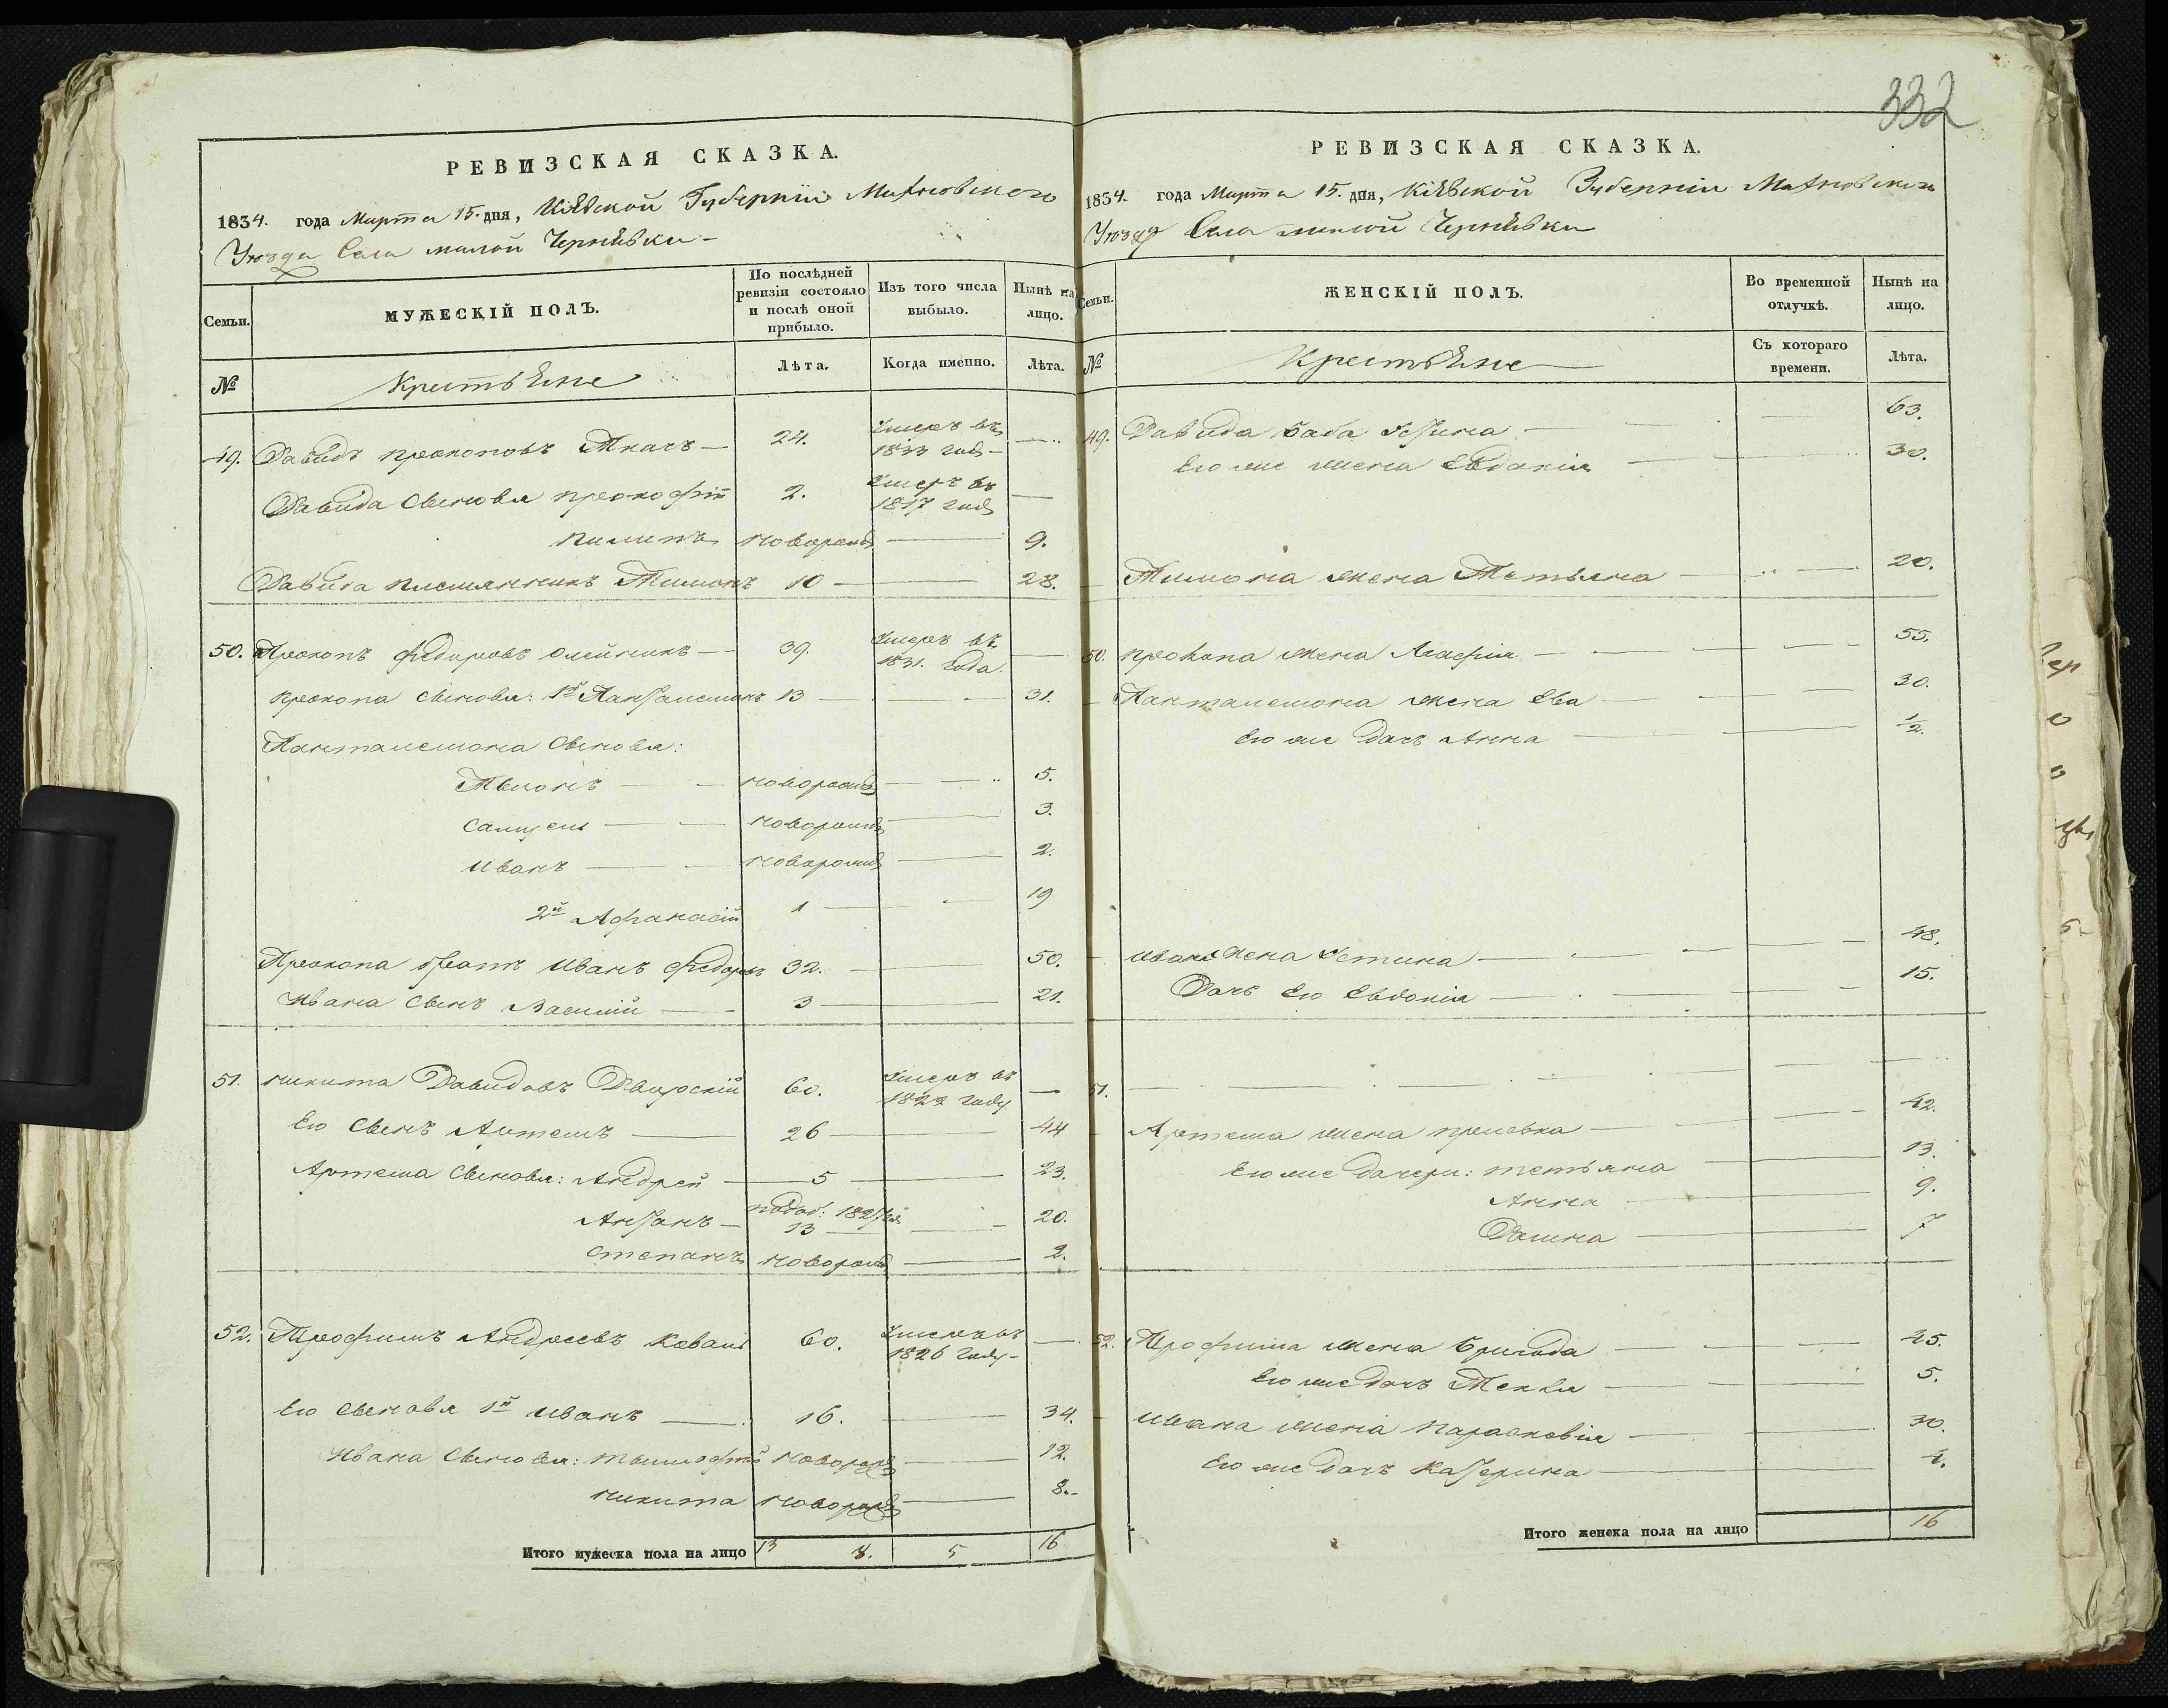 332
РЕВИЗСКАЯ СКАЗКА.
1834. года Марта 15. дня, Кіѣвской Губерніи Махновскаго
Уѣзда Села малой Чернѣвки
Семьи.
МУЖЕСКІЙ ПОЛЪ.
По послѣдней ревизіи состояло и послѣ оной прибыло.
Изъ того числа выбыло.
Нынѣ на лицо.
№
Крестьѣне
Лѣта.
Когда именно.
Лѣта.
49. Давидъ Прокоповъ Ткачъ 24. Умеръ въ 1833 году
Давида Сыновья Прокофій 2. Умеръ въ 1817 году
Пилипъ новорожд 9.
Давида племянникъ Тимонъ 10 28.
50. Прокопъ Федоровъ Олейникъ 39. Умеръ въ 1831. года
Прокопа Сыновья: 1й Пантелемонъ 13 31.
Пантелемона Сыновья:
новорожд 5.
Самуель новорожд 3.
Иванъ новорожд 2.
2й Афанасій 1 19
Прокопа братъ Иванъ Федоровъ 32. 50.
Ивана Сынъ Василий 3 21.
51. Никита Давидовъ Дворскій 60. Умеръ въ 1822 году
Его Сынъ Артемъ 26 44
Артема Сыновья: Андрей 5 23.
Антонъ 13 20.
Степанъ новорожд 2.
52. Трофимъ Андреевъ Коваль 60. Умеръ въ 1826 году
Его Сыновья 1й Иванъ 16. 34.
Ивана Сыновья: Тимофей новорожд 12.
Никита новорожд 8.
Итого мужеска пола на лицо 13 8. 5 16
РЕВИЗСКАЯ СКАЗКА.
1834. года Марта 15. дня, Кіѣвской Губерніи Махновскаго
Уѣзда Села малой Чернѣвки
Семьи.
ЖЕНСКІЙ ПОЛЪ.
Во временной отлучкѣ.
Нынѣ на лицо.
№
Крестьѣне
Съ котораго времени.
Лѣта.
49. Давида баба 63.
Его же жена Євдокія 30.
Тимона жена Тетьяна 20.
50. Прокопа жена Агафія 55.
Пантелемона жена Ева 30.
Его же дочь Анна 1/2.
Ивана жена Устина 48.
Дочь его Евдокія 15.
51.
Артема жена 42.
Его же дочери: Тетьяна 13.
Анна 9.
7
52. Трофима жена Бригида 45.
Его же дочь Текля 5.
Ивана жена Парасковія 30.
Его же дочь Катерина 4.
Итого женска пола на лицо 16